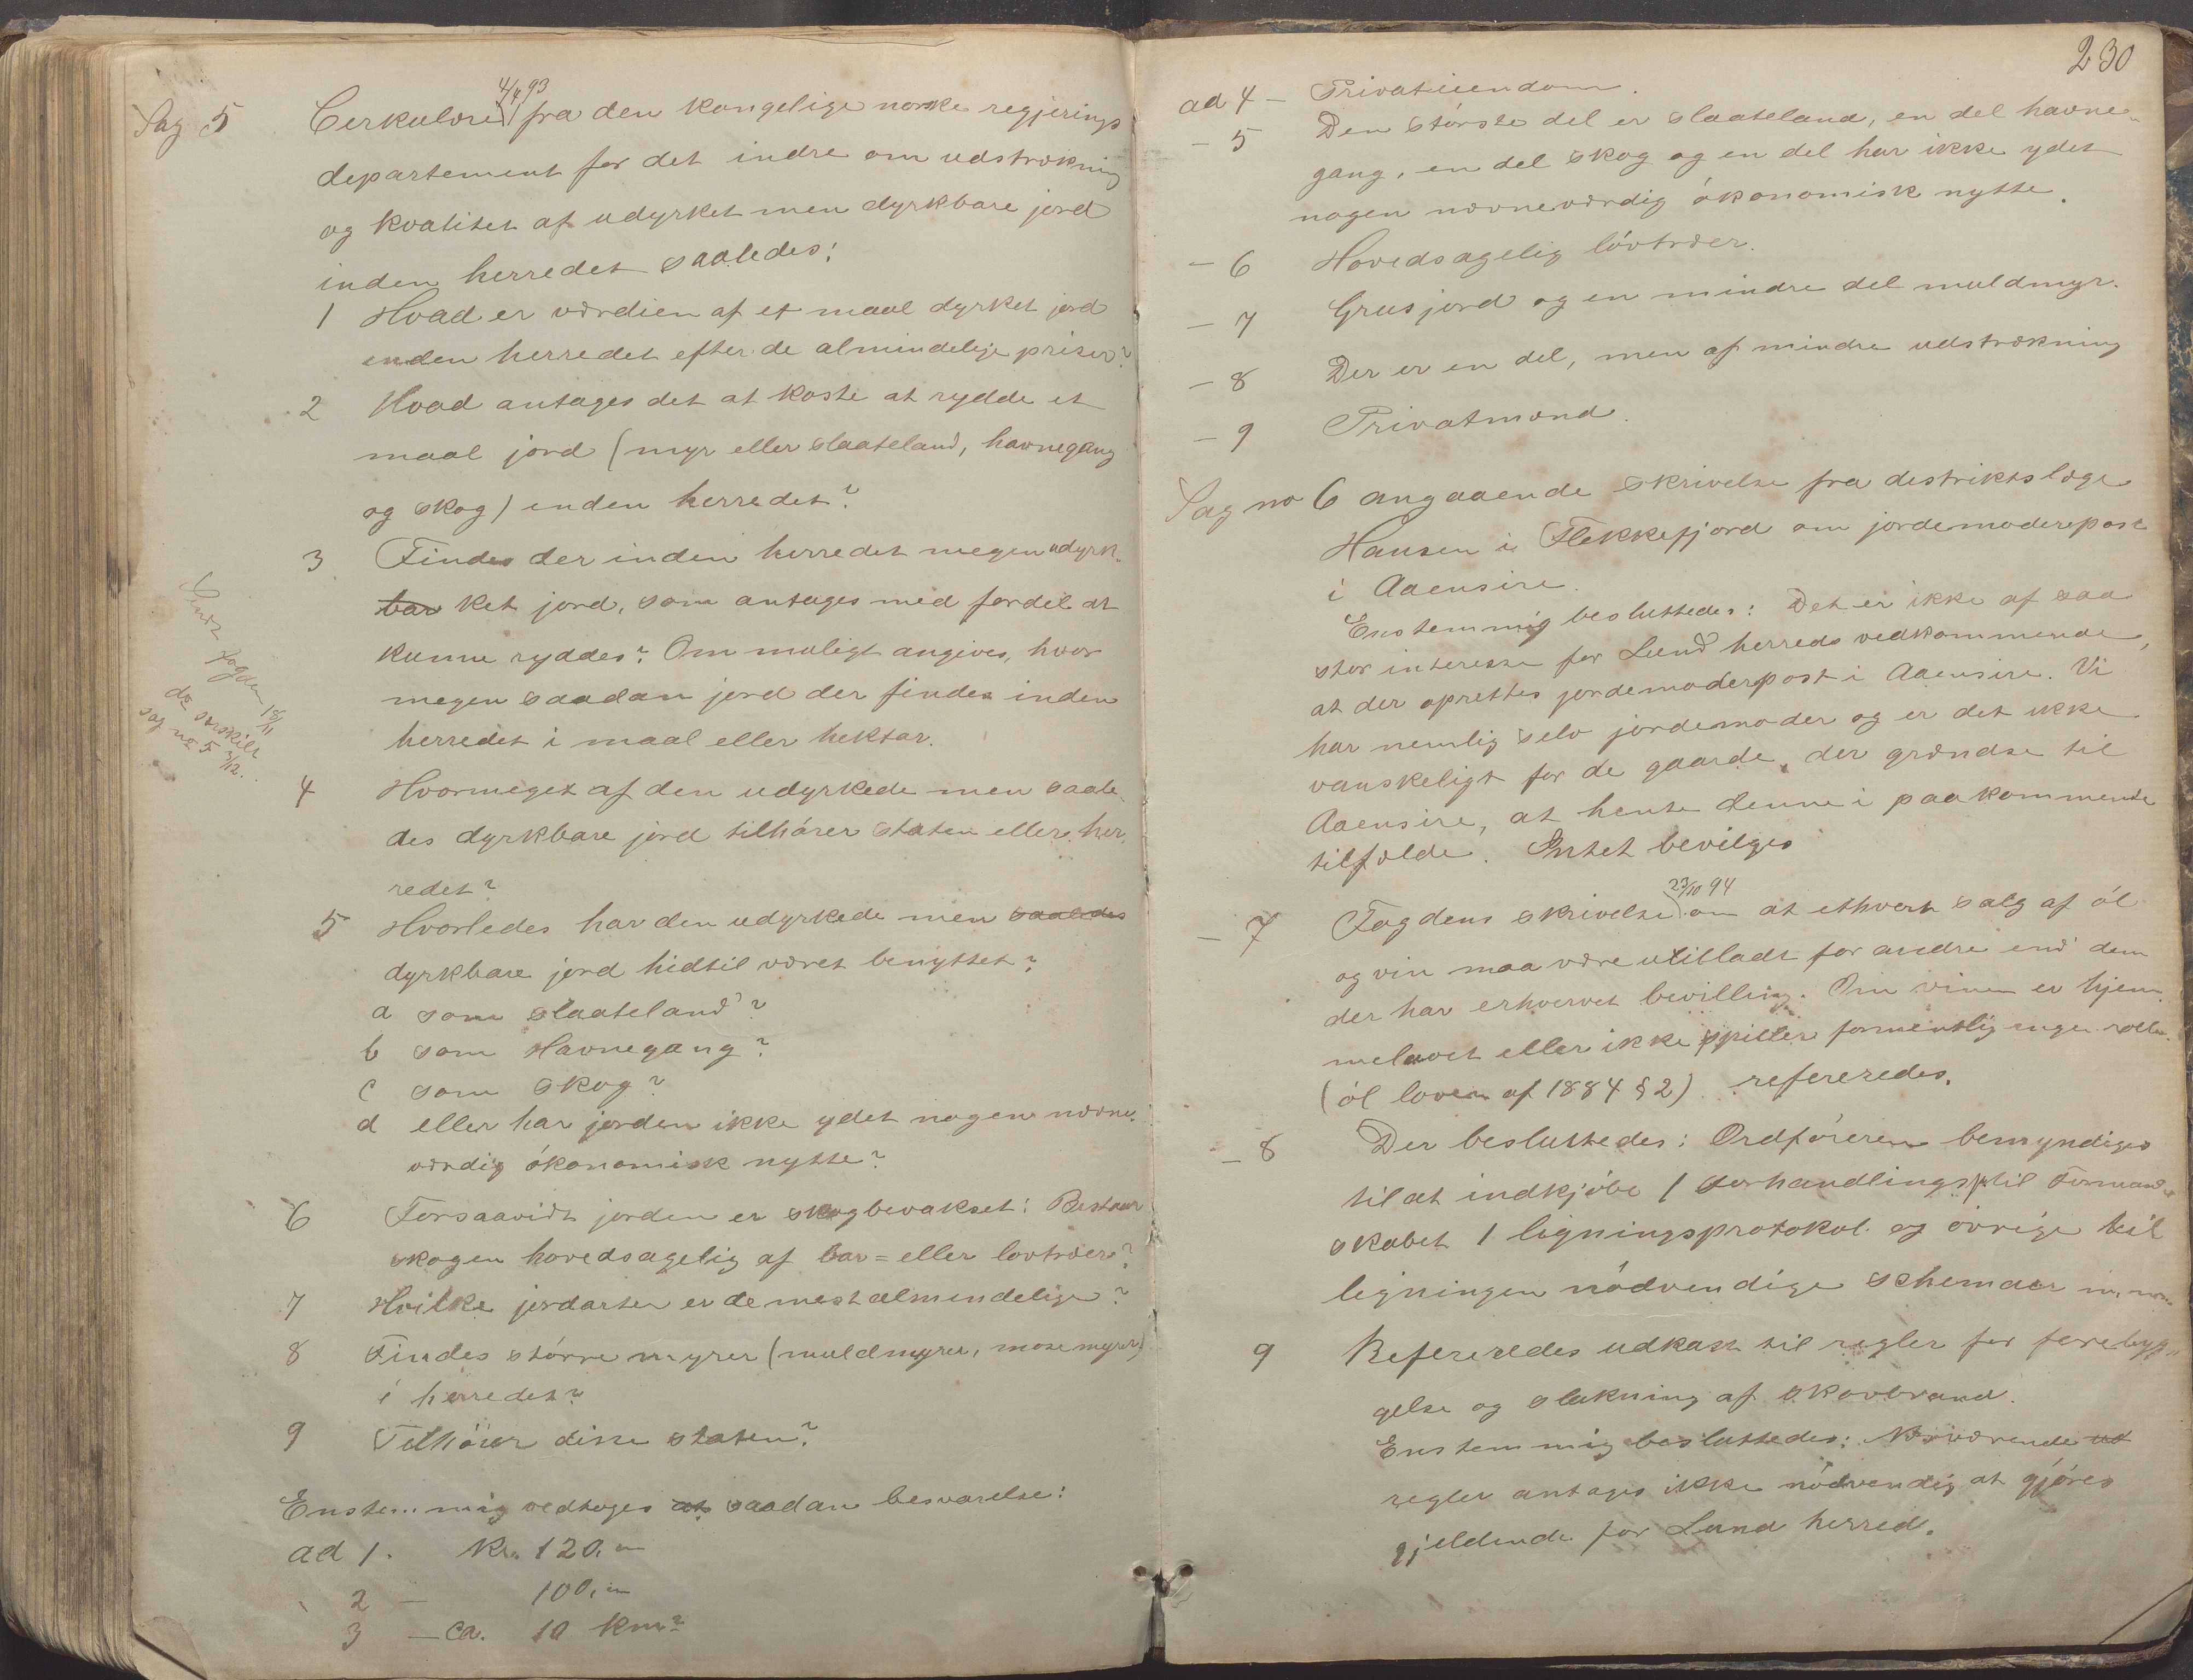 Sag 5 Cerkulære 4/4 93 fra den kongelige norske regjerings
departement for det indre om udstrækning
og kvalitet af udyrket men dyrkbare jord
inden herredet saaledes:
1 Hvad er værdien af et maal dyrket jord
enden herredet efter de almindelige priser?
2 Hvad antages det at koste at rydde et
maal jord (myr eller slaateland, havnegang
og skog) enden herredet?
3 Findes der inden herredet megen udyrk-
bar ket jord, som antages med fordel at
kunne ryddes? Om muligt angives, hvor
megen saadan jord der findes inden
herredet i maal eller hektar.
Sendt fogden 18/11
do særskilt
sag no 5 3/12.
4 Hvormeget af den udyrkede men saale-
des dyrkbare jord tilhører staten eller her-
redet?
5 Hvorledes har den udyrkede men saaledes
dyrkbare jord hidtil været benyttet?
a som slaateland?
b som Havnegang?
c som skog?
d eller har jorden ikke ydet nogen nævne-
værdig økonomisk nytte?
6 Forsaavidt jorden er skogbevokset: Bestaar
skogen hovedsagelig af bar= eller lovtræer?
7 Hvilke jordarter er de mest almindelige?
8 Findes større myrer (muldmyrer, mosemyrer)
i herredet?
9 Tilhører disse staten?
Enstemmig vedtoges at saadan besvarelse:
ad 1. Kr. 120.
2 — 100.
3 — ca. 10 km²
230
ad 4 — Privateiendom.
— 5 Den største del er slaateland, en del havne-
gang, en del skog og en del har ikke ydet
nogen nævneværdig økonomisk nytte.
— 6 Hovedsagelig løvtræer.
— 7 Grusjord og en mindre del muldmyr.
— 8 Der er en del, men af mindre udstrækning
— 9 Privatmænd.
Sag no 6 angaaende skrivelse fra destriktslæge
Hansen i Flekkefjord om jordemoderpost
i Aaensire.
Enstemmig besluttedes: Det er ikke af saa
stor interesse for Lund herreds vedkommende,
at der oprettes jordemoderpost i Aaensire. Vi
har nemlig selv jordemoder og er det ikke
vanskeligt for de gaarde, der grændse til
Aaensire, at hente denne i paakommende
tilfælde. Intet bevilges
— 7 Fogdens skrivelse 23/10 94 om at ethvert salg af øl
og vin maa være utilladt for andre end dem
der har erhvervet bevilling. Om vinen er hjem-
melavet eller ikke spiller formentlig ingen rolle.
(øl loven af 1884 § 2). refereredes.
— 8 Der besluttedes: Ordføreren bemyndiges
til at indkjøbe 1 forhandlingsp. til Formand-
skabet 1 ligningsprotokol og øvrige til
ligningen nødvendige schemaer
9 Refereredes udkast til regler for forebyg-
gelse og slukning af skovbrand.
Enstemmig besluttedes: Nærværende ud
regler antages ikke nødvendig at gjøres
gjeldende for Lund herred.